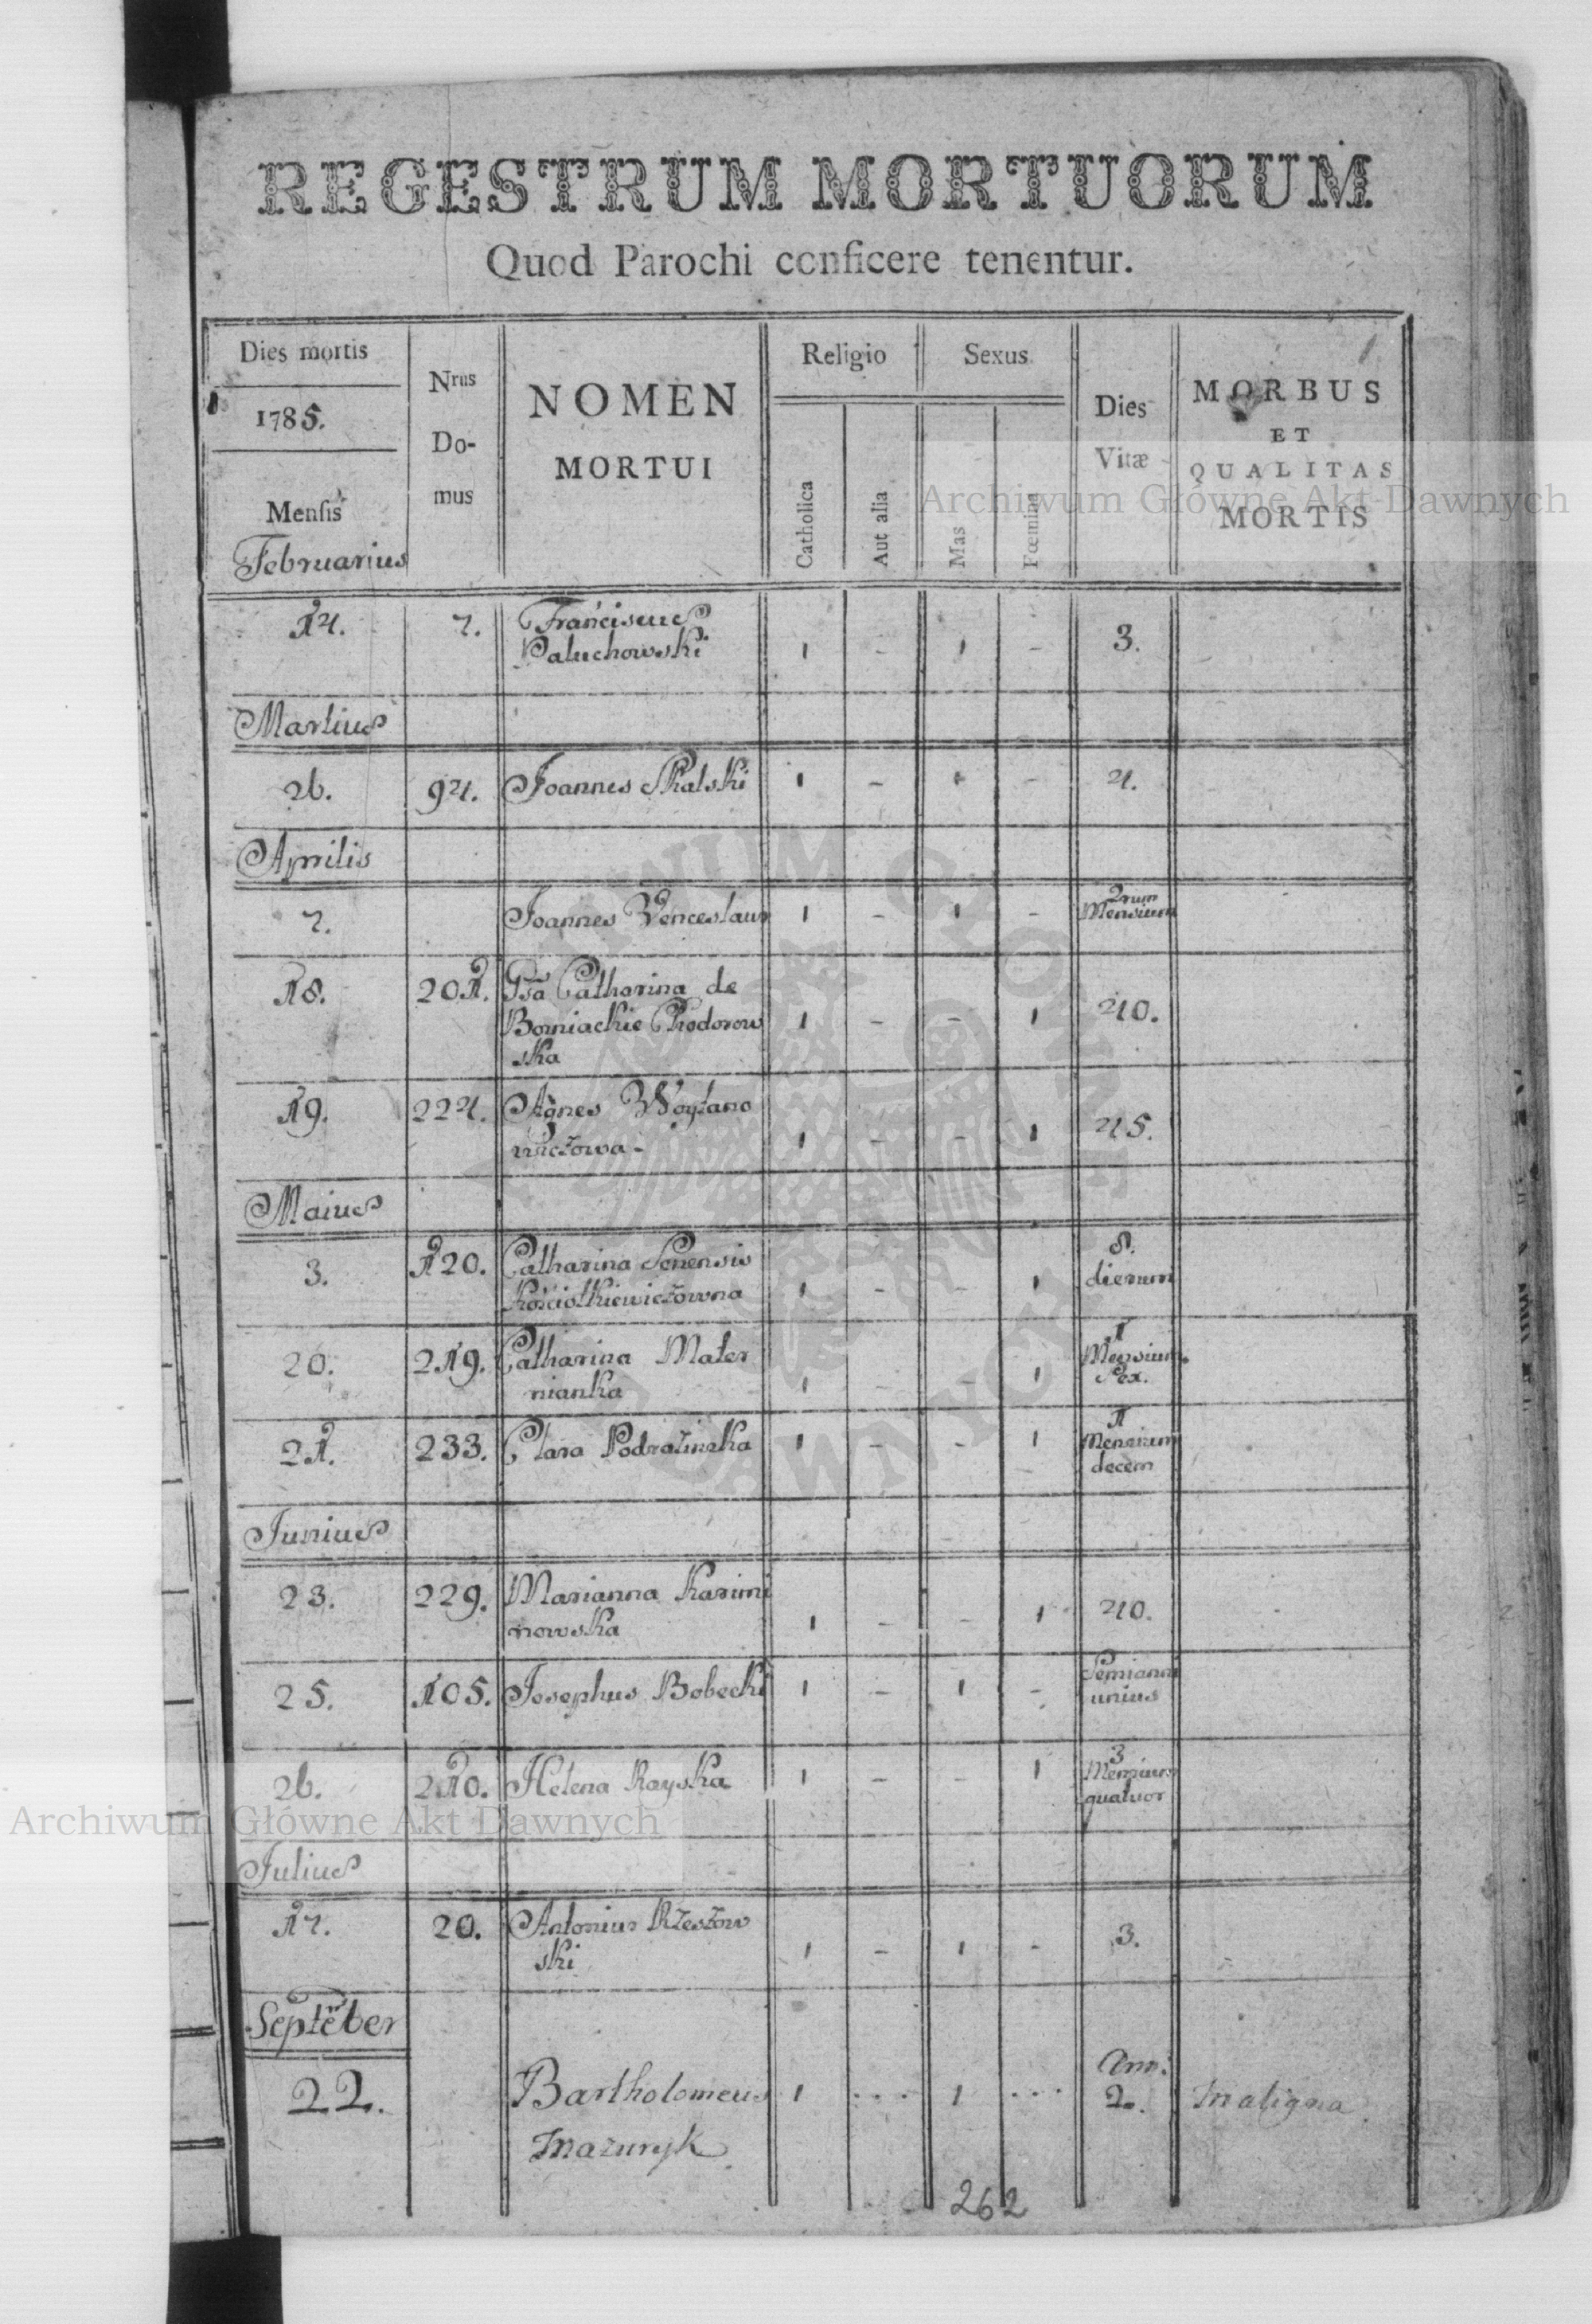 REGESTRUM MORTUORUM
Quod Parochi conficere tenentur.
Dies mortis
1785.
Mensis
Februarius
Nrus
Do-
mus
NOMEN
MORTUI
Religio
Catholica
Aut alia
Sexus
Mas
Fœmina
Dies
Vitæ
1
MORBUS
ET
QUALITAS
MORTIS
Archiwum Główne Akt Dawnych
14. 7. Franciscus
Paluchowski 1 - 1 - 3.
Martius
26. 94. Joannes Skalski 1 - 1 - 4.
Aprilis
7. Joannes Venceslaus 1 - 1 - 2rum
Mensium
18. 201. Gsa Catharina de
Borniackie Chodorow 1 - - 1 40.
ska
19. 224. Agnes Woytano
wiczowa - 1 - - 1 45.
Maius
3. 120. Catharina Senensis 8.
Kościołkiewiczowna 1 - - 1 dierum
20. 219. Catharina Mater 1
nianka 1 - - 1 Mensium
Sex.
21. 233. Clara Podrazinska 1 - - 1 1
Mensium
decem
Junius
23. 229. Marianna Karimi
nowska 1 - - 1 40.
25. 105. Josephus Bobecki 1 - 1 - Semianni
unius
26. 210. Helena Rayska 1 - - 1 3
Mensium
quatuor
Archiwum Główne Akt Dawnych
Julius
17. 20. Antonius Rzeszow
ski 1 - 1 - 3.
Septēber
22. Bartholomeus 1 ... 1 ... Ann:
2. Maligna
Mazuryk
262